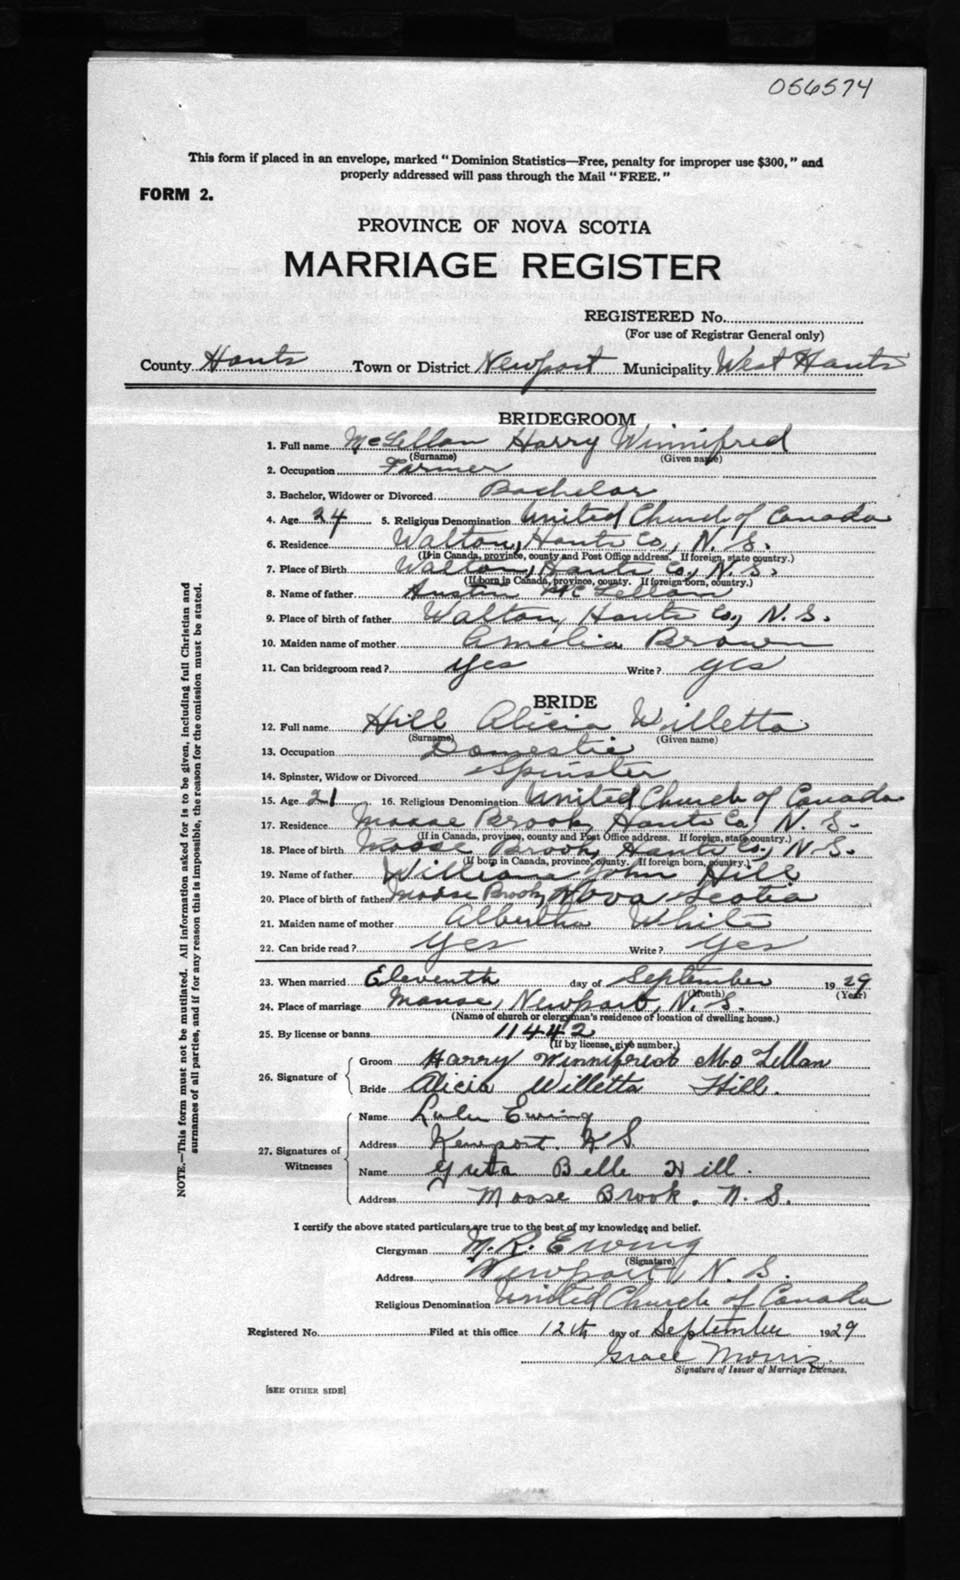 056574
This form if placed in an envelope, marked "Dominion Statistics—Free, penalty for improper use $300," and
properly addressed will pass through the Mail "FREE."
FORM 2.
PROVINCE OF NOVA SCOTIA
MARRIAGE REGISTER
REGISTERED No.
(For use of Registrar General only)
County Hants Town or District Newport Municipality West Hants
BRIDEGROOM
1. Full name McLellan Harry Winnifred
(Surname) (Given name)
2. Occupation Farmer
3. Bachelor, Widower or Divorced Bachelor
4. Age 24 5. Religious Denomination United Church of Canada
6. Residence Walton, Hants Co., N. S.
(If in Canada, province, county and Post Office address. If foreign, state country.)
7. Place of Birth Walton, Hants Co., N. S.
(If born in Canada, province, county. If foreign-born, country.)
8. Name of father Austin McLellan
9. Place of birth of father Walton, Hants Co., N. S.
10. Maiden name of mother Amelia Brown
11. Can bridegroom read? yes Write? yes
BRIDE
12. Full name Hill Alicia Willetta
(Surname) (Given name)
13. Occupation Domestic
14. Spinster, Widow or Divorced Spinster
15. Age 21 16. Religious Denomination United Church of Canada
17. Residence Moose Brook, Hants Co., N. S.
(If in Canada, province, county and Post Office address. If foreign, state country.)
18. Place of birth Moose Brook, Hants Co., N. S.
(If born in Canada, province, county. If foreign born, country.)
19. Name of father William John Hill
20. Place of birth of father Moose Brook, Nova Scotia
21. Maiden name of mother Albertha White
22. Can bride read? yes Write? yes
23. When married Eleventh day of September 1929
(Month) (Year)
24. Place of marriage Manse, Newport, N. S.
(Name of church or clergyman's residence or location of dwelling house.)
25. By license or banns 11442
(If by license, give number.)
26. Signature of Groom Harry Winnifred McLellan
Bride Alicia Willetta Hill.
27. Signatures of Witnesses
Name Lulu Ewing
Address Newport. N S.
Name Greta Belle Hill.
Address Moose Brook. N. S.
I certify the above stated particulars are true to the best of my knowledge and belief.
Clergyman M. R. Ewing
(Signature)
Address Newport, N. S.
Religious Denomination United Church of Canada
Registered No. Filed at this office 12th day of September 1929
Grace Morris.
Signature of Issuer of Marriage Licenses.
[SEE OTHER SIDE]
NOTE.—This form must not be mutilated. All information asked for is to be given, including full Christian and
surnames of all parties, and if for any reason this is impossible, the reason for the omission must be stated.